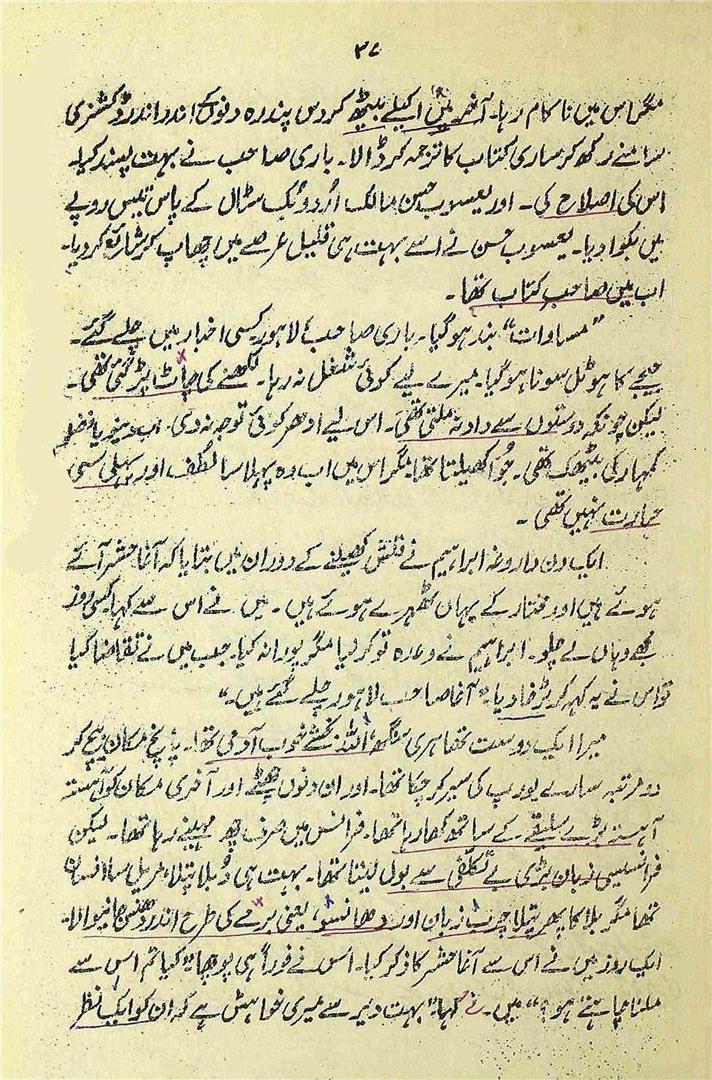 ۳۷
مگر اس میں ناکام رہا۔ آخر میں اکیلے بیٹھ کر دس پندرہ دنوں کے اندر اندر ڈکشنری
سامنے رکھ کر ساری کتاب کا ترجمہ کر ڈالا۔ باری صاحب نے بہت پسند کیا۔
اس کی اصلاح کی۔ اور یعسوب حسن مالک اُردو بُک سٹال کے پاس تیس روپے
میں بکوا دیا۔ یعسوب حسن نے اسے بہت ہی قلیل عرصے میں چھاپ کر شائع کر دیا۔
اب میں صاحبِ کتاب تھا۔
”مساوات“ بند ہو گیا۔ باری صاحب لاہور کسی اخبار میں چلے گئے۔
جیجے کا ہوٹل سونا ہو گیا۔ میرے لیے کوئی شغل نہ رہا۔ لکھنے کی چاٹ پڑ گئی تھی۔
لیکن چونکہ دوستوں سے داد نہ ملتی تھی۔ اس لیے ادھر کوئی توجہ نہ دی۔ اب دینو یا فضلو
کمہار کی بیٹھک تھی۔ جُوا کھیلتا تھا۔ مگر اس میں اب وہ پہلا سا لُطف اور پہلی سی
حرارت نہیں تھی۔
ایک دن داروغہ ابراہیم نے فلش کھیلنے کے دوران میں بتایا کہ آغا حشر آئے
ہوئے ہیں اور مختار کے یہاں ٹھہرے ہوئے ہیں۔ میں نے اس سے کہا کسی روز
مجھے وہاں لے چلو۔ ابراہیم نے وعدہ تو کر لیا مگر پورا نہ کیا۔ جب میں نے تقاضا کیا
تو اس نے یہ کہہ کر ٹرخا دیا۔ ”آغا صاحب لاہور چلے گئے ہیں۔“
میرا ایک دوست تھا ہری سنگھ، اللہ بخشے خوب آدمی تھا۔ پانچ مکان بیچ کر
دو مرتبہ سارے یورپ کی سیر کر چکا تھا۔ اور ان دنوں چھٹے اور آخری مکان کو آہستہ
آہستہ بڑے سلیقے کے ساتھ کھا رہا تھا۔ فرانس میں صرف چھ مہینے رہا تھا۔ لیکن
فرانسیسی زبان بڑی بے تکلفی سے بول لیتا تھا۔ بہت ہی دُبلا پتلا، مریل سا انسان
تھا مگر بلا کا پھرتیلا، چرب زبان اور دھانسو، یعنی برمے کی طرح اندر دھنس جانیوالا۔
ایک روز میں نے اس سے آغا حشر کا ذکر کیا۔ اس نے فوراً ہی پوچھا ”کیا تم اس سے
ملنا چاہتے ہو؟“ میں نے کہا۔ ”بہت دیر سے میری خواہش ہے کہ ان کو ایک نظر